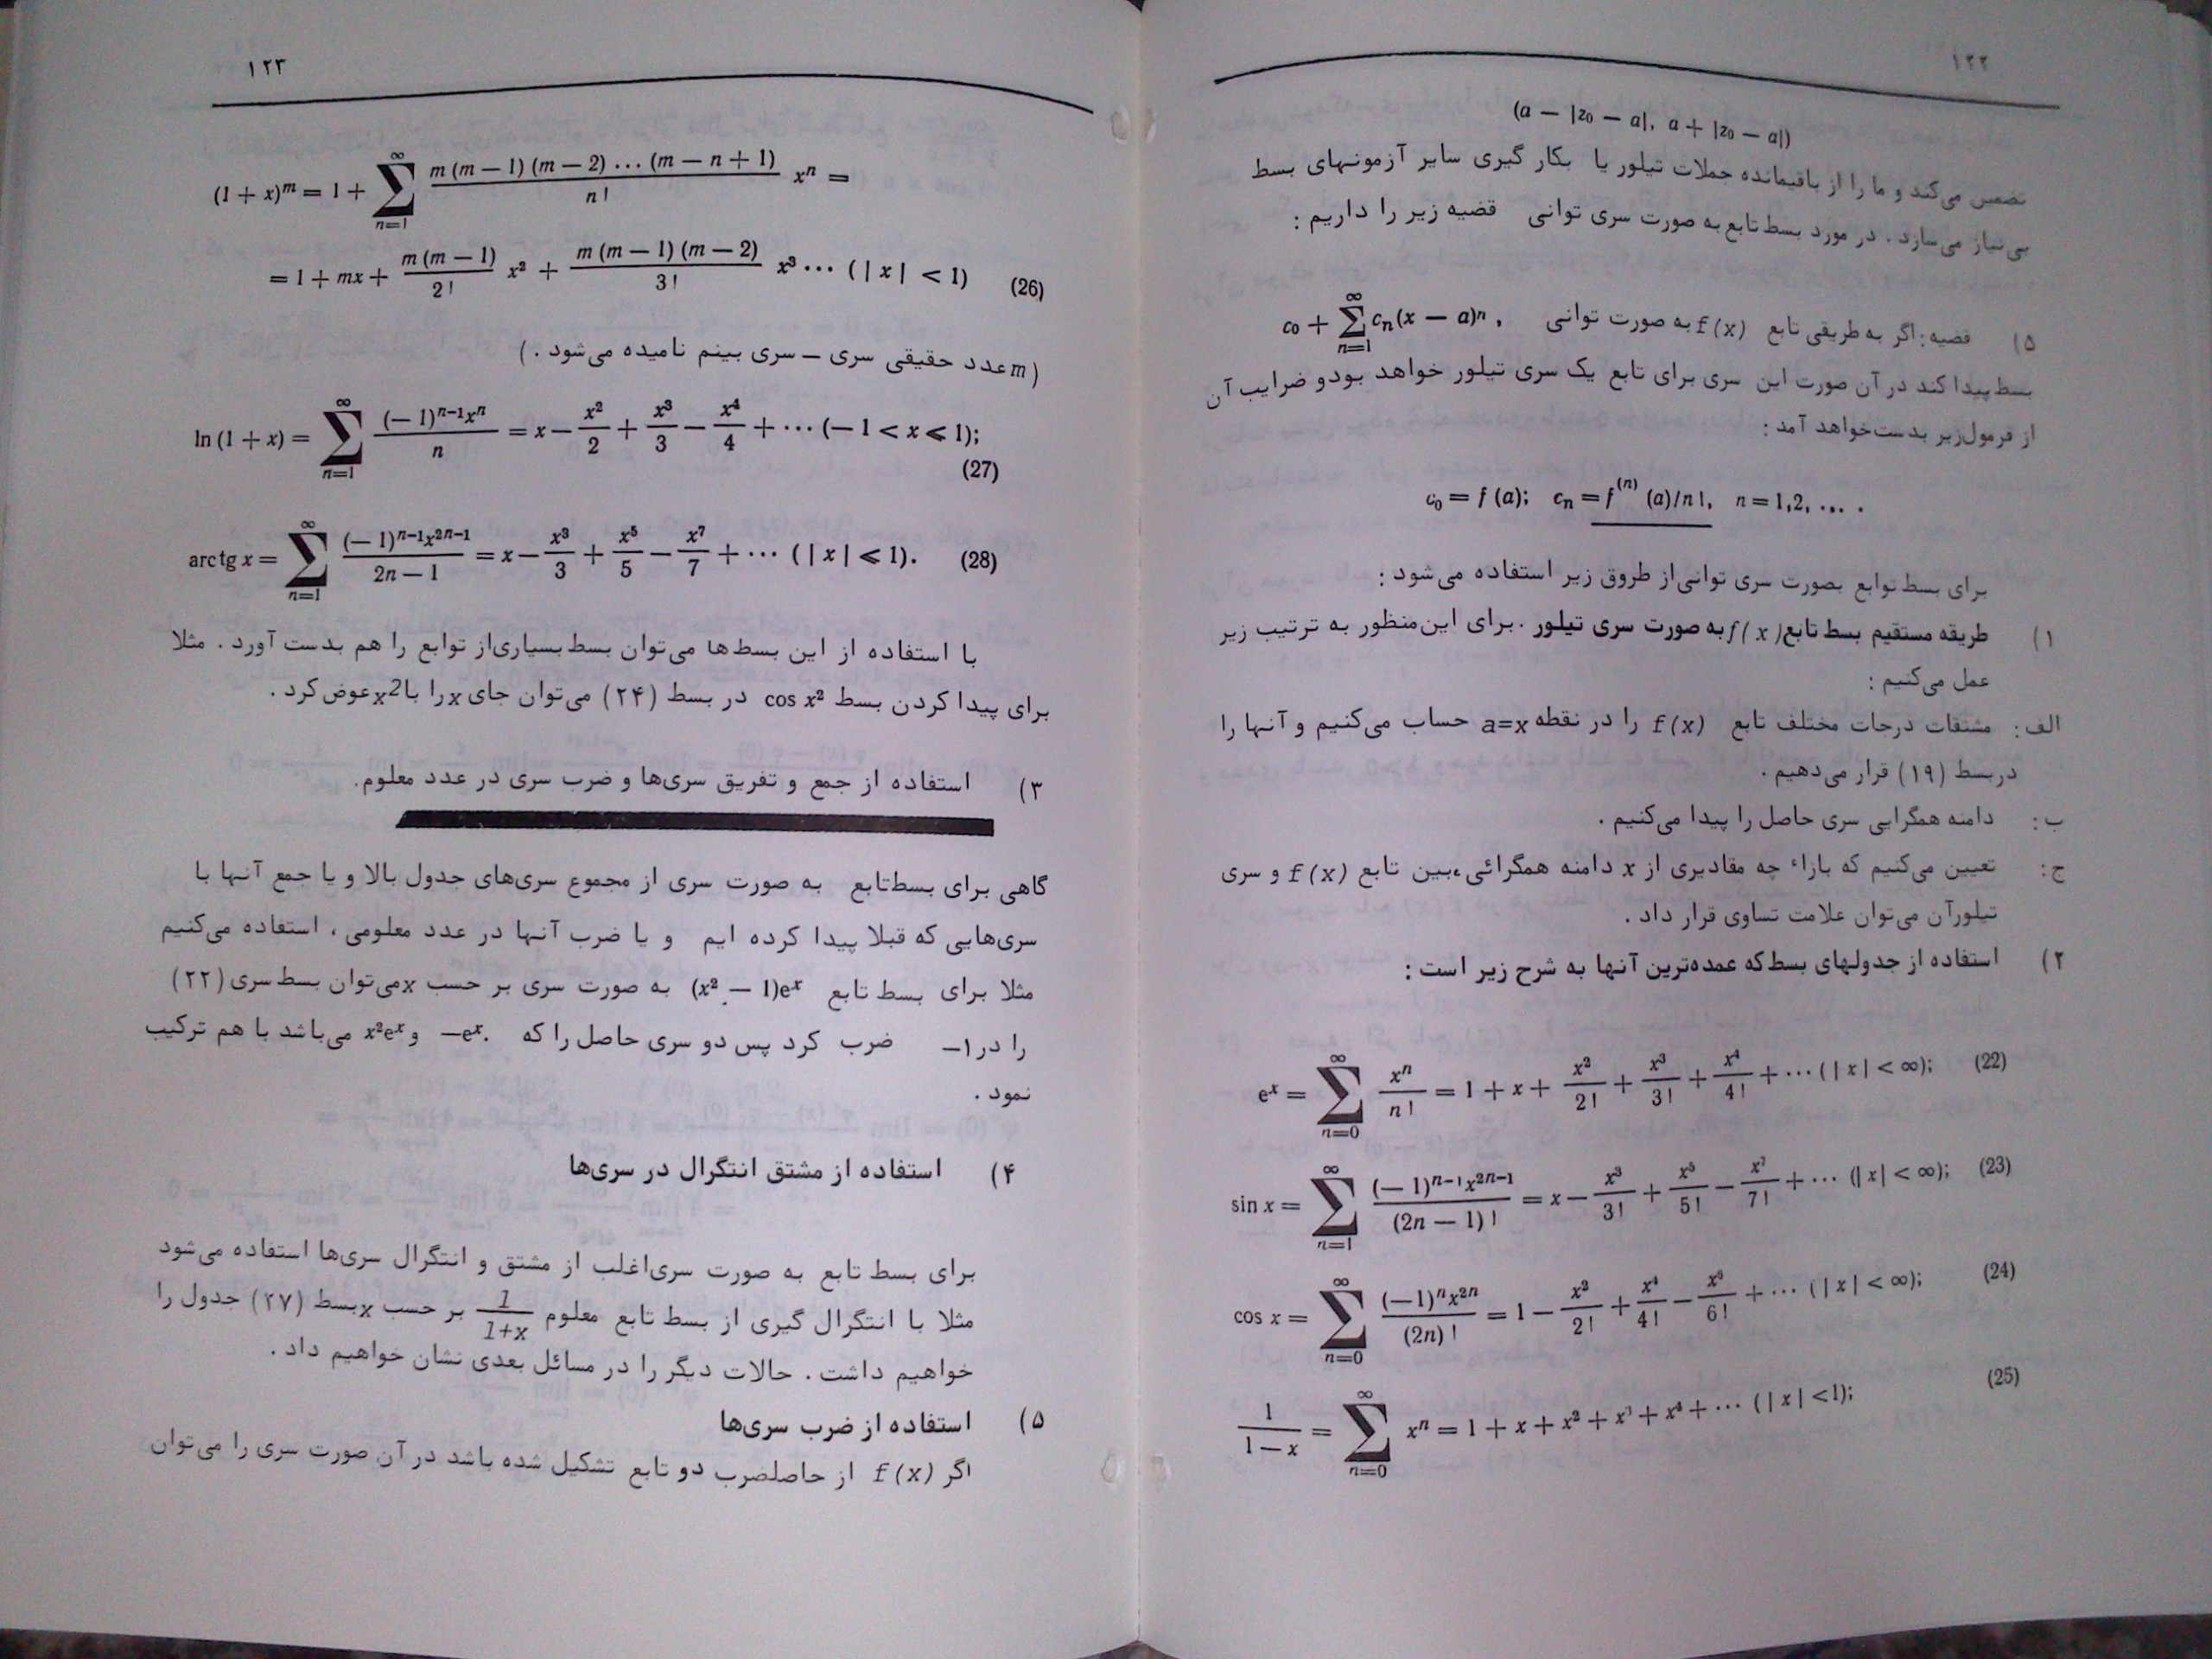 ۱۲۲
(a — |z₀ — a|, a + |z₀ — a|)
تضمین می‌کند و ما را از باقیمانده جملات تیلور یا بکار گیری سایر آزمونهای بسط
بی‌نیاز می‌سازد . در مورد بسط تابع به صورت سری توانی قضیه زیر را داریم :
۵) قضیه : اگر به طریقی تابع f(x) به صورت توانی c₀ + ∑_{n=1}^{∞} cₙ(x — a)ⁿ ,
بسط پیدا کند در آن صورت این سری برای تابع یک سری تیلور خواهد بود و ضرایب آن
از فرمول زیر بدست خواهد آمد :
c₀ = f (a); cₙ = f⁽ⁿ⁾ (a)/n!, n = 1,2, ... .
برای بسط توابع بصورت سری توانی از طروق زیر استفاده می‌شود :
۱) طریقه مستقیم بسط تابع f(x) به صورت سری تیلور . برای این منظور به ترتیب زیر
عمل می‌کنیم :
الف : مشتقات درجات مختلف تابع f(x) را در نقطه a=x حساب می‌کنیم و آنها را
در بسط (۱۹) قرار می‌دهیم .
ب : دامنه همگرایی سری حاصل را پیدا می‌کنیم .
ج : تعیین می‌کنیم که بازاء چه مقادیری از x دامنه همگرائی ، بین تابع f(x) و سری
تیلور آن می‌توان علامت تساوی قرار داد .
۲) استفاده از جدولهای بسط که عمده‌ترین آنها به شرح زیر است :
eˣ = ∑_{n=0}^{∞} xⁿ/n! = 1 + x + x²/2! + x³/3! + x⁴/4! + ··· (|x| < ∞); (22)
sin x = ∑_{n=1}^{∞} (—1)ⁿ⁻¹x²ⁿ⁻¹/(2n — 1)! = x — x³/3! + x⁵/5! — x⁷/7! + ··· (|x| < ∞); (23)
cos x = ∑_{n=0}^{∞} (—1)ⁿx²ⁿ/(2n)! = 1 — x²/2! + x⁴/4! — x⁶/6! + ··· (|x| < ∞); (24)
1/(1 — x) = ∑_{n=0}^{∞} xⁿ = 1 + x + x² + x³ + x⁴ + ··· (|x| < 1); (25)
۱۲۳
(1 + x)ᵐ = 1 + ∑_{n=1}^{∞} m (m — 1) (m — 2) ... (m — n + 1)/n! xⁿ =
= 1 + mx + m (m — 1)/2! x² + m (m — 1) (m — 2)/3! x³ ··· (|x| < 1) (26)
(m عدد حقیقی سری – سری بینم نامیده می‌شود . )
ln (1 + x) = ∑_{n=1}^{∞} (—1)ⁿ⁻¹xⁿ/n = x — x²/2 + x³/3 — x⁴/4 + ··· (— 1 < x ⩽ 1);
(27)
arctg x = ∑_{n=1}^{∞} (—1)ⁿ⁻¹x²ⁿ⁻¹/2n — 1 = x — x³/3 + x⁵/5 — x⁷/7 + ··· (|x| ⩽ 1). (28)
با استفاده از این بسط‌ها می‌توان بسط بسیاری از توابع را هم بدست آورد . مثلا
برای پیدا کردن بسط cos x² در بسط (۲۴) می‌توان جای x را با x² عوض کرد .
۳) استفاده از جمع و تفریق سری‌ها و ضرب سری در عدد معلوم.
گاهی برای بسط تابع به صورت سری از مجموع سری‌های جدول بالا و یا جمع آنها با
سری‌هایی که قبلا پیدا کرده ایم و یا ضرب آنها در عدد معلومی ، استفاده می‌کنیم
مثلا برای بسط تابع (x² — 1)eˣ به صورت سری بر حسب x می‌توان بسط سری (۲۲)
را در ۱– ضرب کرد پس دو سری حاصل را که —eˣ. و x²eˣ می‌باشد با هم ترکیب
نمود .
۴) استفاده از مشتق انتگرال در سری‌ها
برای بسط تابع به صورت سری اغلب از مشتق و انتگرال سری‌ها استفاده می‌شود
مثلا با انتگرال گیری از بسط تابع معلوم 1/(1+x) بر حسب x بسط (۲۷) جدول را
خواهیم داشت . حالات دیگر را در مسائل بعدی نشان خواهیم داد .
۵) استفاده از ضرب سری‌ها
اگر f(x) از حاصلضرب دو تابع تشکیل شده باشد در آن صورت سری را می‌توان